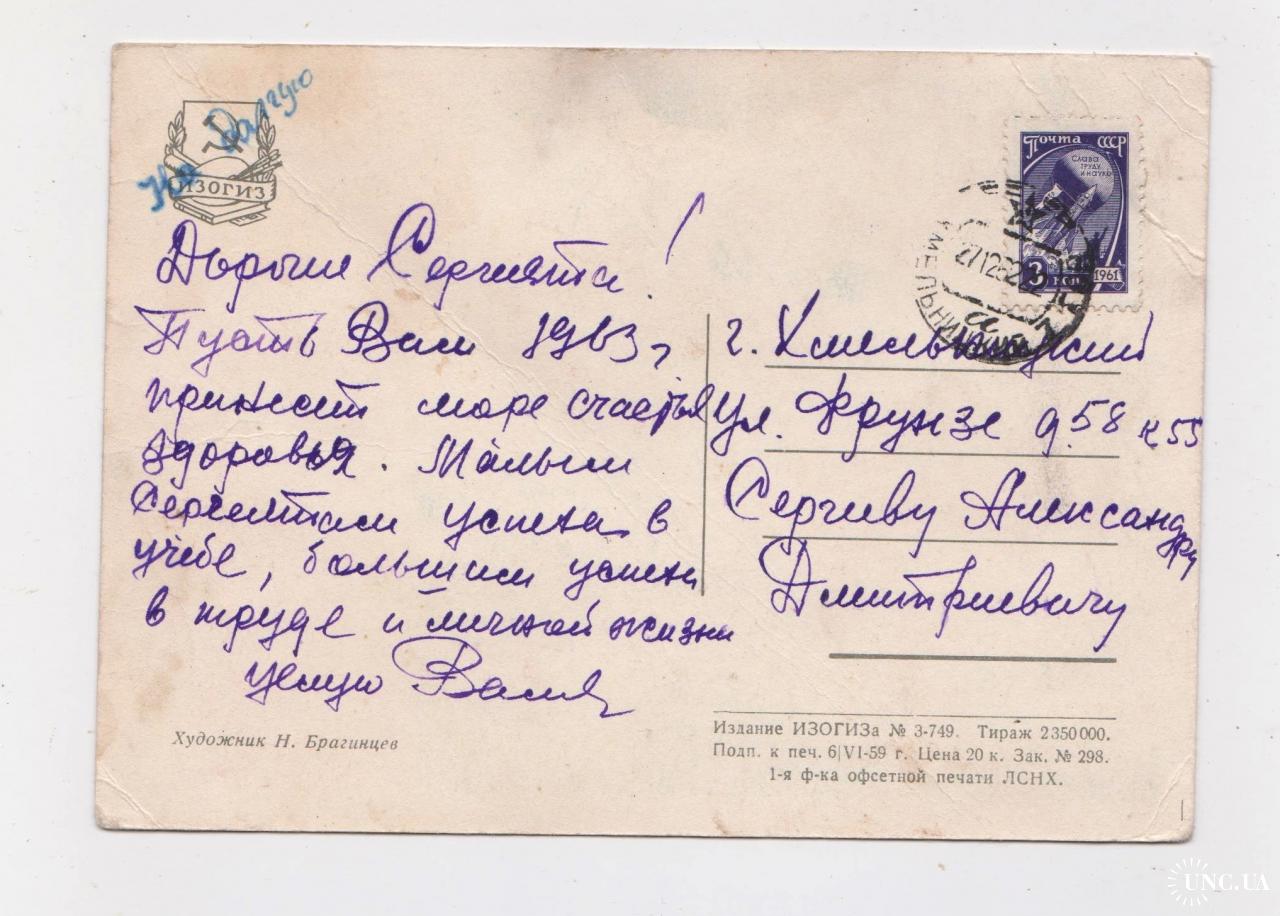 На Далгую
ИЗОГИЗ
Почта СССР
Слава
труду
и науке
3
коп
1961
271262
Дорогие Сергията!
Пусть Вам 1963,
принесет море счастья
здоровья. Малым
Сергиятам успеха в
учебе, большим успеха
в труде и личной жизни
целую Валя
г. Хмельницкий
ул. Фрунзе д. 58 к 55
Сергиву Александру
Дмитриевичу
Художник Н. Брагинцев
Издание ИЗОГИЗа № 3-749. Тираж 2350000.
Подп. к печ. 6|VI-59 г. Цена 20 к. Зак. № 298.
1-я ф-ка офсетной печати ЛСНХ.
UNC.UA